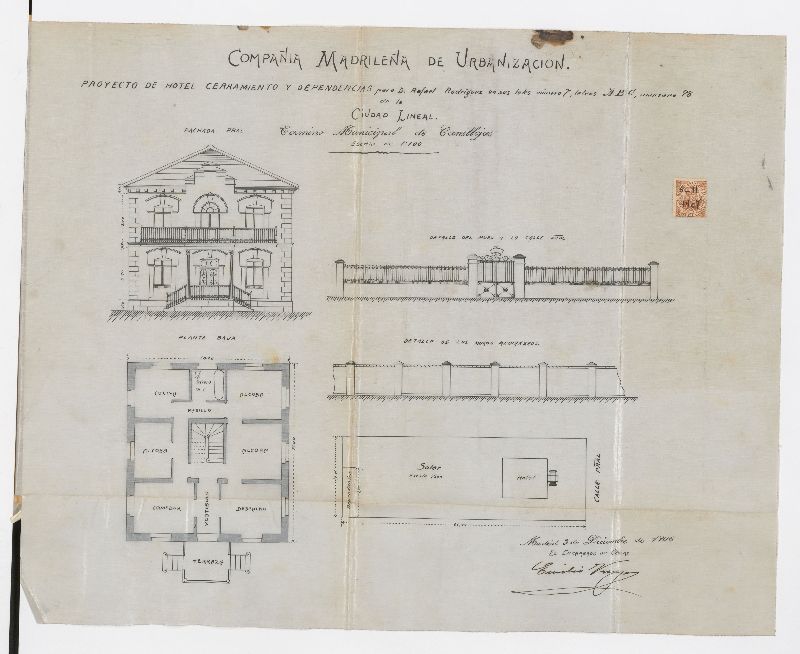 COMPAÑIA MADRILEÑA DE URBANIZACION.
PROYECTO DE HOTEL CERRAMIENTO Y DEPENDENCIAS para D. Rafael Rodriguez en sus lotes número 7, letras A B C, manzana 98
de la
CIUDAD LINEAL.
Camino Municipal de Canillejas
ESCALA DE 1:100
FACHADA PRAL
DETALLE DEL MURO Y LA CALLE PPAL
PLANTA BAJA
DETALLE DE LOS MUROS MEDIANEROS.
COCINA
ALCOBA
PASILLO
ALCOBA
ALCOBA
COMEDOR
VESTIBULO
DESPACHO
TERRAZA
Solar
Hotel
CALLE PPAL
Madrid 3 de Diciembre de
EL ENCARGADO DE OBRAS
Emilio Vargas